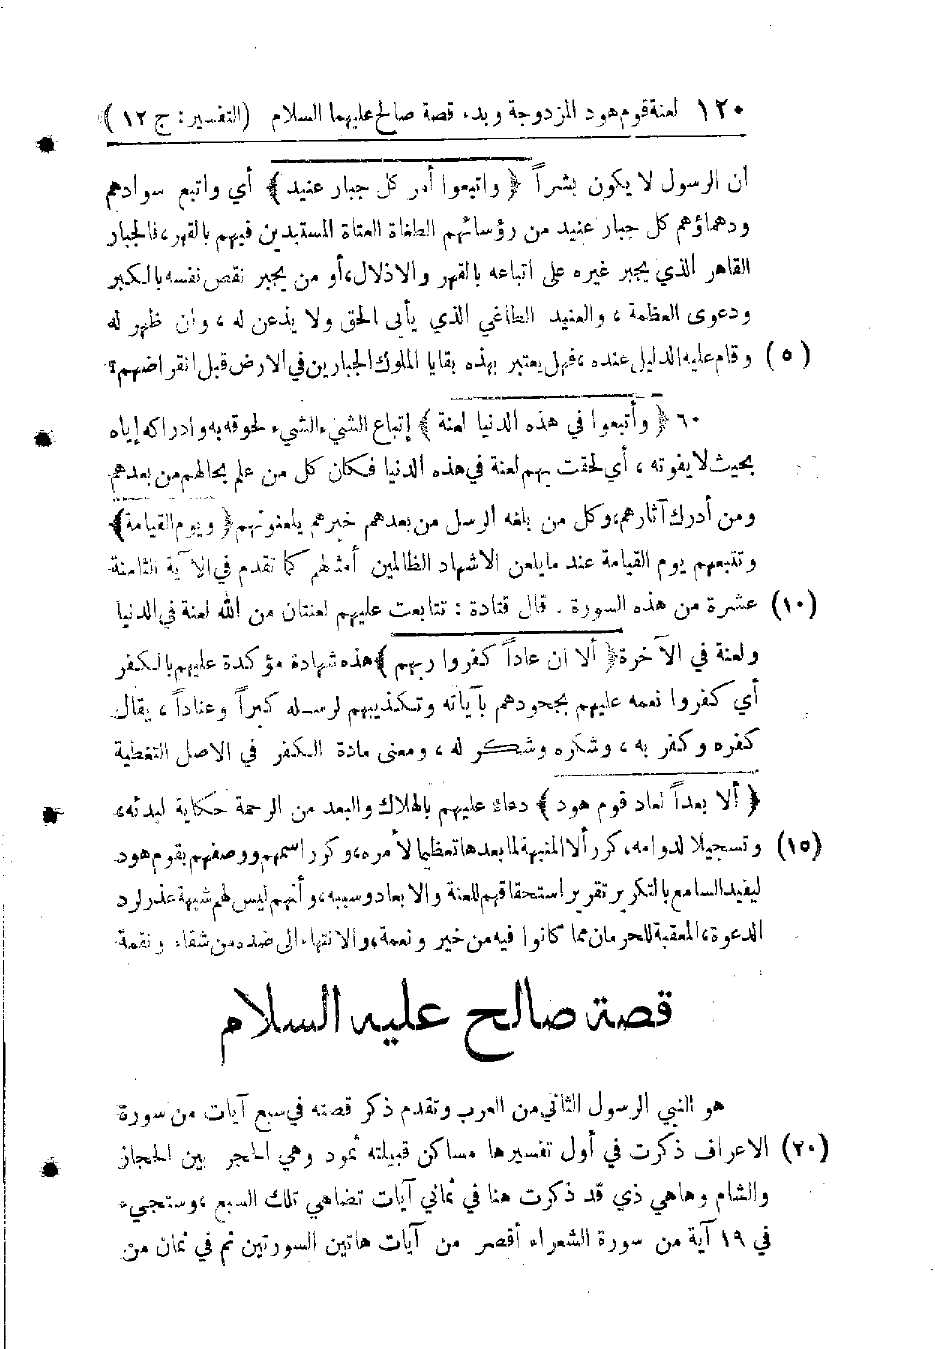 ١٢٠ لعنة قوم هود المزدوجة وبدء قصة صالح عليهما السلام (التفسير: ج ١٢)
أن الرسول لا يكون بشراً ﴿ واتبعوا أمر كل جبار عنيد ﴾ أي واتبع سوادهم
ودهماؤهم كل جبار عنيد من رؤسائهم الطغاة العتاة المستبدين فيهم بالقهر، فالجبار
القاهر الذي يجبر غيره على اتباعه بالقهر والاذلال، أو من يجبر نقص نفسه بالكبر
ودعوى العظمة ، والعنيد الطاغي الذي يأبى الحق ولا يذعن له ، وان ظهر له
(٥) وقام عليه الدليل عنده ، فهل يعتبر بهذه بقايا الملوك الجبارين في الارض قبل انقراضهم؟
٦٠ ﴿ وأتبعوا في هذه الدنيا لعنة ﴾ إتباع الشيء الشيء لحوقه به وادراكه إياه
بحيث لا يفوته ، أي لحقت بهم لعنة في هذه الدنيا فكان كل من علم بحالهم من بعدهم
ومن أدرك آثارهم، وكل من بلغه الرسل من بعدهم خبرهم يلعنونهم ﴿ ويوم القيامة ﴾
وتتبعهم يوم القيامة عند ما يلعن الاشهاد الظالمين أمثالهم كما تقدم في الآية الثامنة
(١٠) عشرة من هذه السورة . قال قتادة : تتابعت عليهم لعنتان من الله لعنة في الدنيا
ولعنة في الآخرة ﴿ ألا ان عاداً كفروا ربهم ﴾ هذه شهادة مؤكدة عليهم بالكفر
أي كفروا نعمه عليهم بجحودهم بآياته وتكذيبهم لرسله كبراً وعناداً ، يقال
كفره وكفر به ، وشكره وشكر له ، ومعنى مادة الكفر في الاصل التغطية
﴿ ألا بعداً لعاد قوم هود ﴾ دعاء عليهم بالهلاك والبعد من الرحمة حكاية لبدئه،
(١٥) وتسجيلا لدوامه، كرر ألا المنبهة لما بعدها تعظيما لأمره، وكرر اسمهم ووصفهم بقوم هود
ليفيد السامع بالتكرير تقرير استحقاقهم للعنة والابعاد وسببه، وأنهم ليس لهم شبهة عذر لرد
الدعوة، المعقبة للحرمان مما كانوا فيه من خير ونعمة، والانتهاء الى ضده من شقاء ونقمة
قصة صالح عليه السلام
هو النبي الرسول الثاني من العرب وتقدم ذكر قصته في سبع آيات من سورة
(٢٠) الاعراف ذكرت في أول تفسيرها مساكن قبيلته ثمود وهي الحجر بين الحجاز
والشام وها هي ذي قد ذكرت هنا في ثماني آيات تضاهي تلك السبع ، وستجيء
في ١٩ آية من سورة الشعراء أقصر من آيات هاتين السورتين ثم في ثمان من